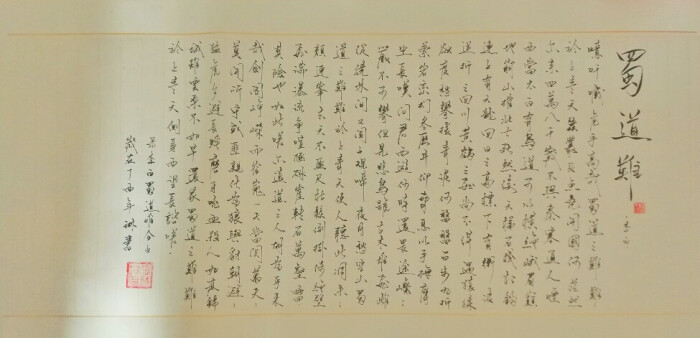 蜀道難
李白
噫吁嚱危乎高哉蜀道之難難
於上青天蠶叢及魚鳧開國何茫然
尔來四萬八千歲不與秦塞通人煙
西當太白有鳥道可以橫絕峨眉巔
地崩山摧壯士死然後天梯石棧相鉤
連上有六龍回日之高標下有衝波
逆折之回川黃鶴之飛尚不得過猿猱
欲度愁攀援青泥何盤盤百步九折
縈岩巒捫參歷井仰脅息以手撫膺
坐長嘆問君西遊何時還畏途巉
巖不可攀但見悲鳥號古木雄飛雌
從繞林間又聞子規啼夜月愁空山蜀
道之難難於上青天使人聽此凋朱
顏連峰去天不盈尺枯松倒掛倚絕壁
飛湍瀑流爭喧豗砯崖轉石萬壑雷
其險也如此嗟尔遠道之人胡為乎來
哉劍閣崢嶸而崔嵬一夫當關萬夫
莫開所守或匪親化為狼與豺朝避
猛虎夕避長蛇磨牙吮血殺人如麻錦
城雖云樂不如早還家蜀道之難難
於上青天側身西望長咨嗟
李白蜀道难
歲在丁酉年 書